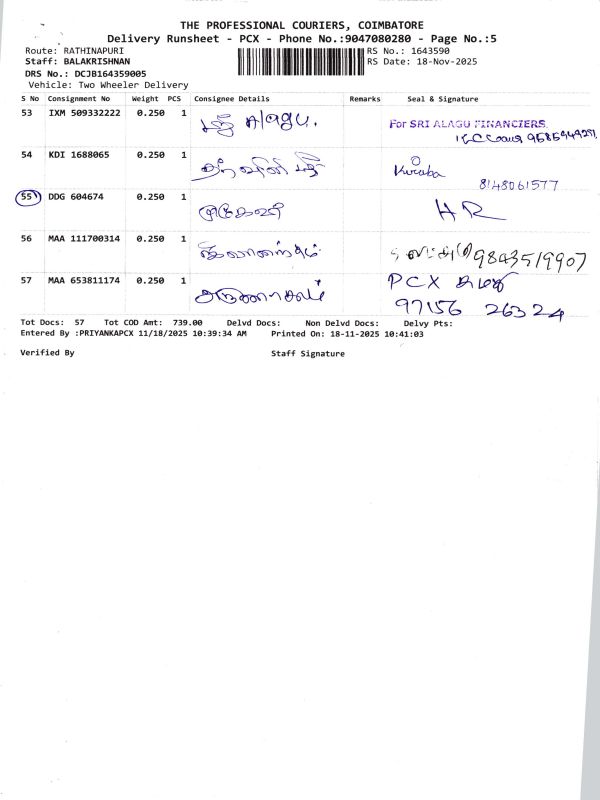 THE PROFESSIONAL COURIERS, COIMBATORE
Delivery Runsheet - PCX - Phone No.:9047080280 - Page No.:5
Route: RATHINAPURI RS No.: 1643590
Staff: BALAKRISHNAN RS Date: 18-Nov-2025
DRS No.: DCJB164359005
Vehicle: Two Wheeler Delivery
S No Consignment No Weight PCS Consignee Details Remarks Seal & Signature
53 IXM 509332222 0.250 1 ஸ்ரீ Alagu. For SRI ALAGU FINANCIERS
54 KDI 1688065 0.250 1
8148061577
55 DDG 604674 0.250 1 HR
56 MAA 111700314 0.250 1 9843519907
57 MAA 653811174 0.250 1 அருணாசலம் PCX
97156 26324
Tot Docs: 57 Tot COD Amt: 739.00 Delvd Docs: Non Delvd Docs: Delvy Pts:
Entered By :PRIYANKAPCX 11/18/2025 10:39:34 AM Printed On: 18-11-2025 10:41:03
Verified By Staff Signature